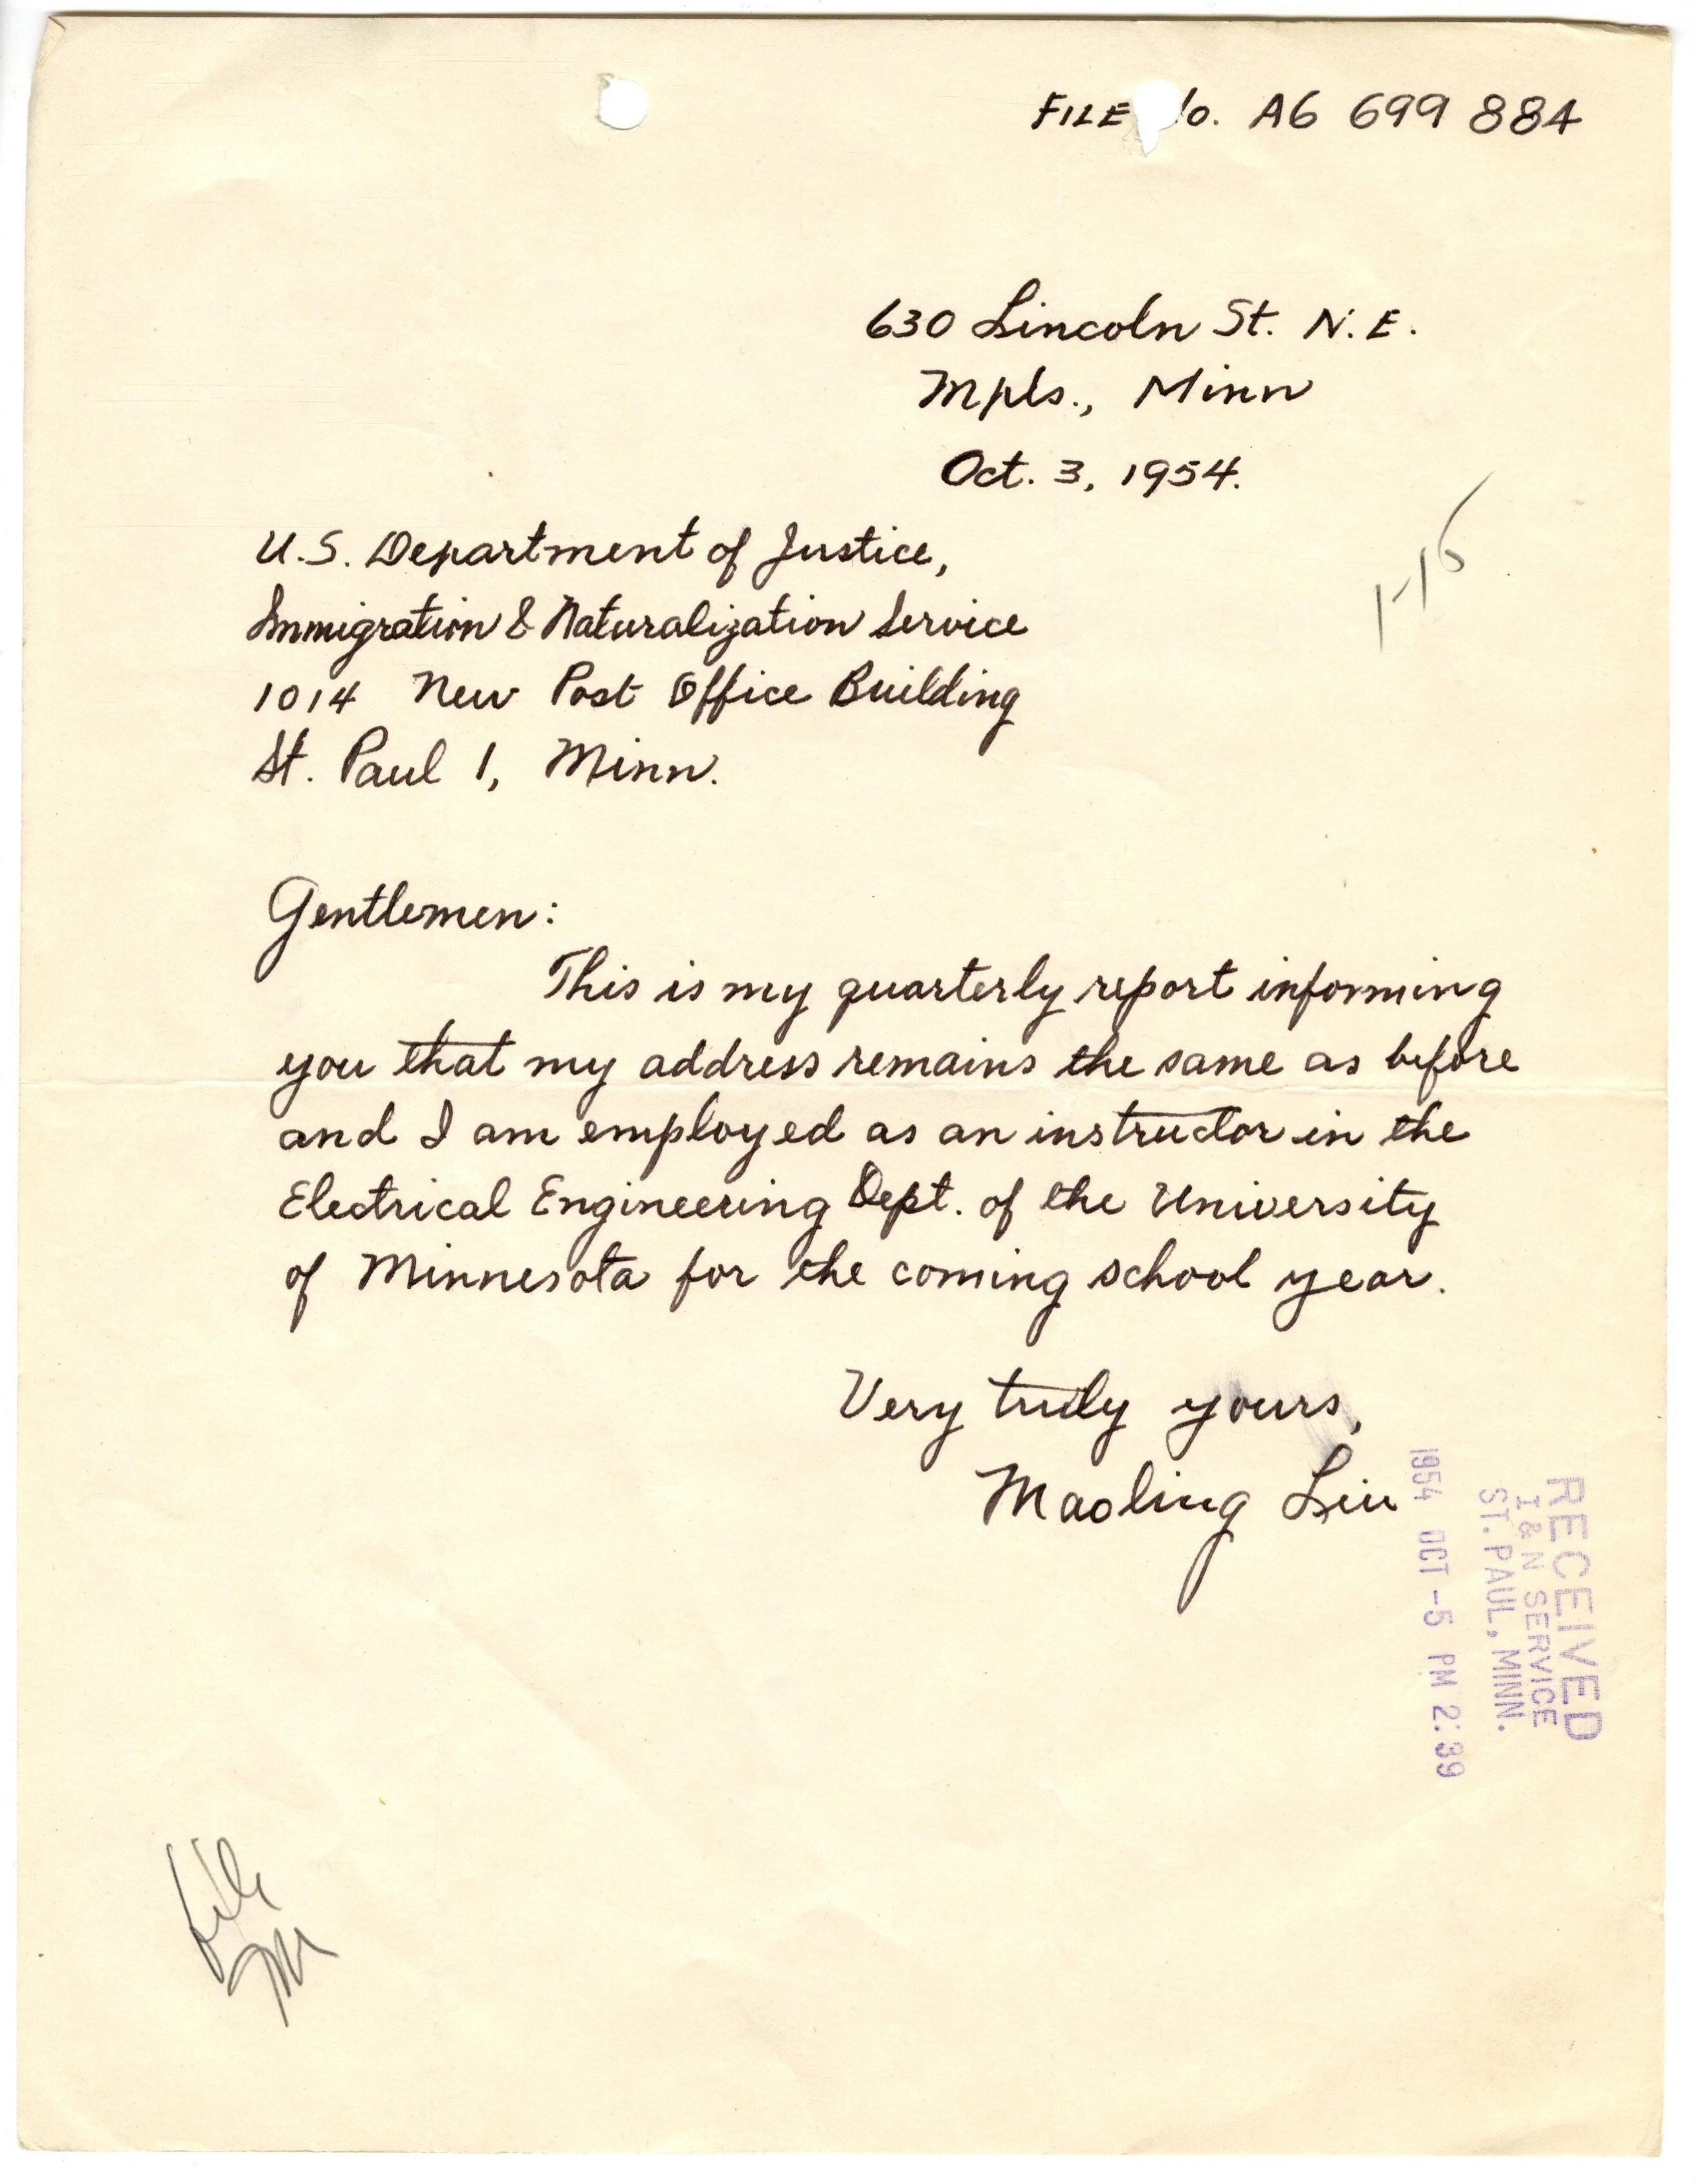 FILE No. A6 699 884
630 Lincoln St. N.E.
Mpls., Minn
Oct. 3, 1954.
1-15
U.S. Department of Justice,
Immigration & Naturalization Service
1014 New Post Office Building
St. Paul 1, Minn.
Gentlemen:
This is my quarterly report informing
you that my address remains the same as before
and I am employed as an instructor in the
Electrical Engineering Dept. of the University
of Minnesota for the coming school year.
Very truly yours,
Maoling Liu
RECEIVED
I & N SERVICE
ST. PAUL, MINN.
1954 OCT -5 PM 2:39
file